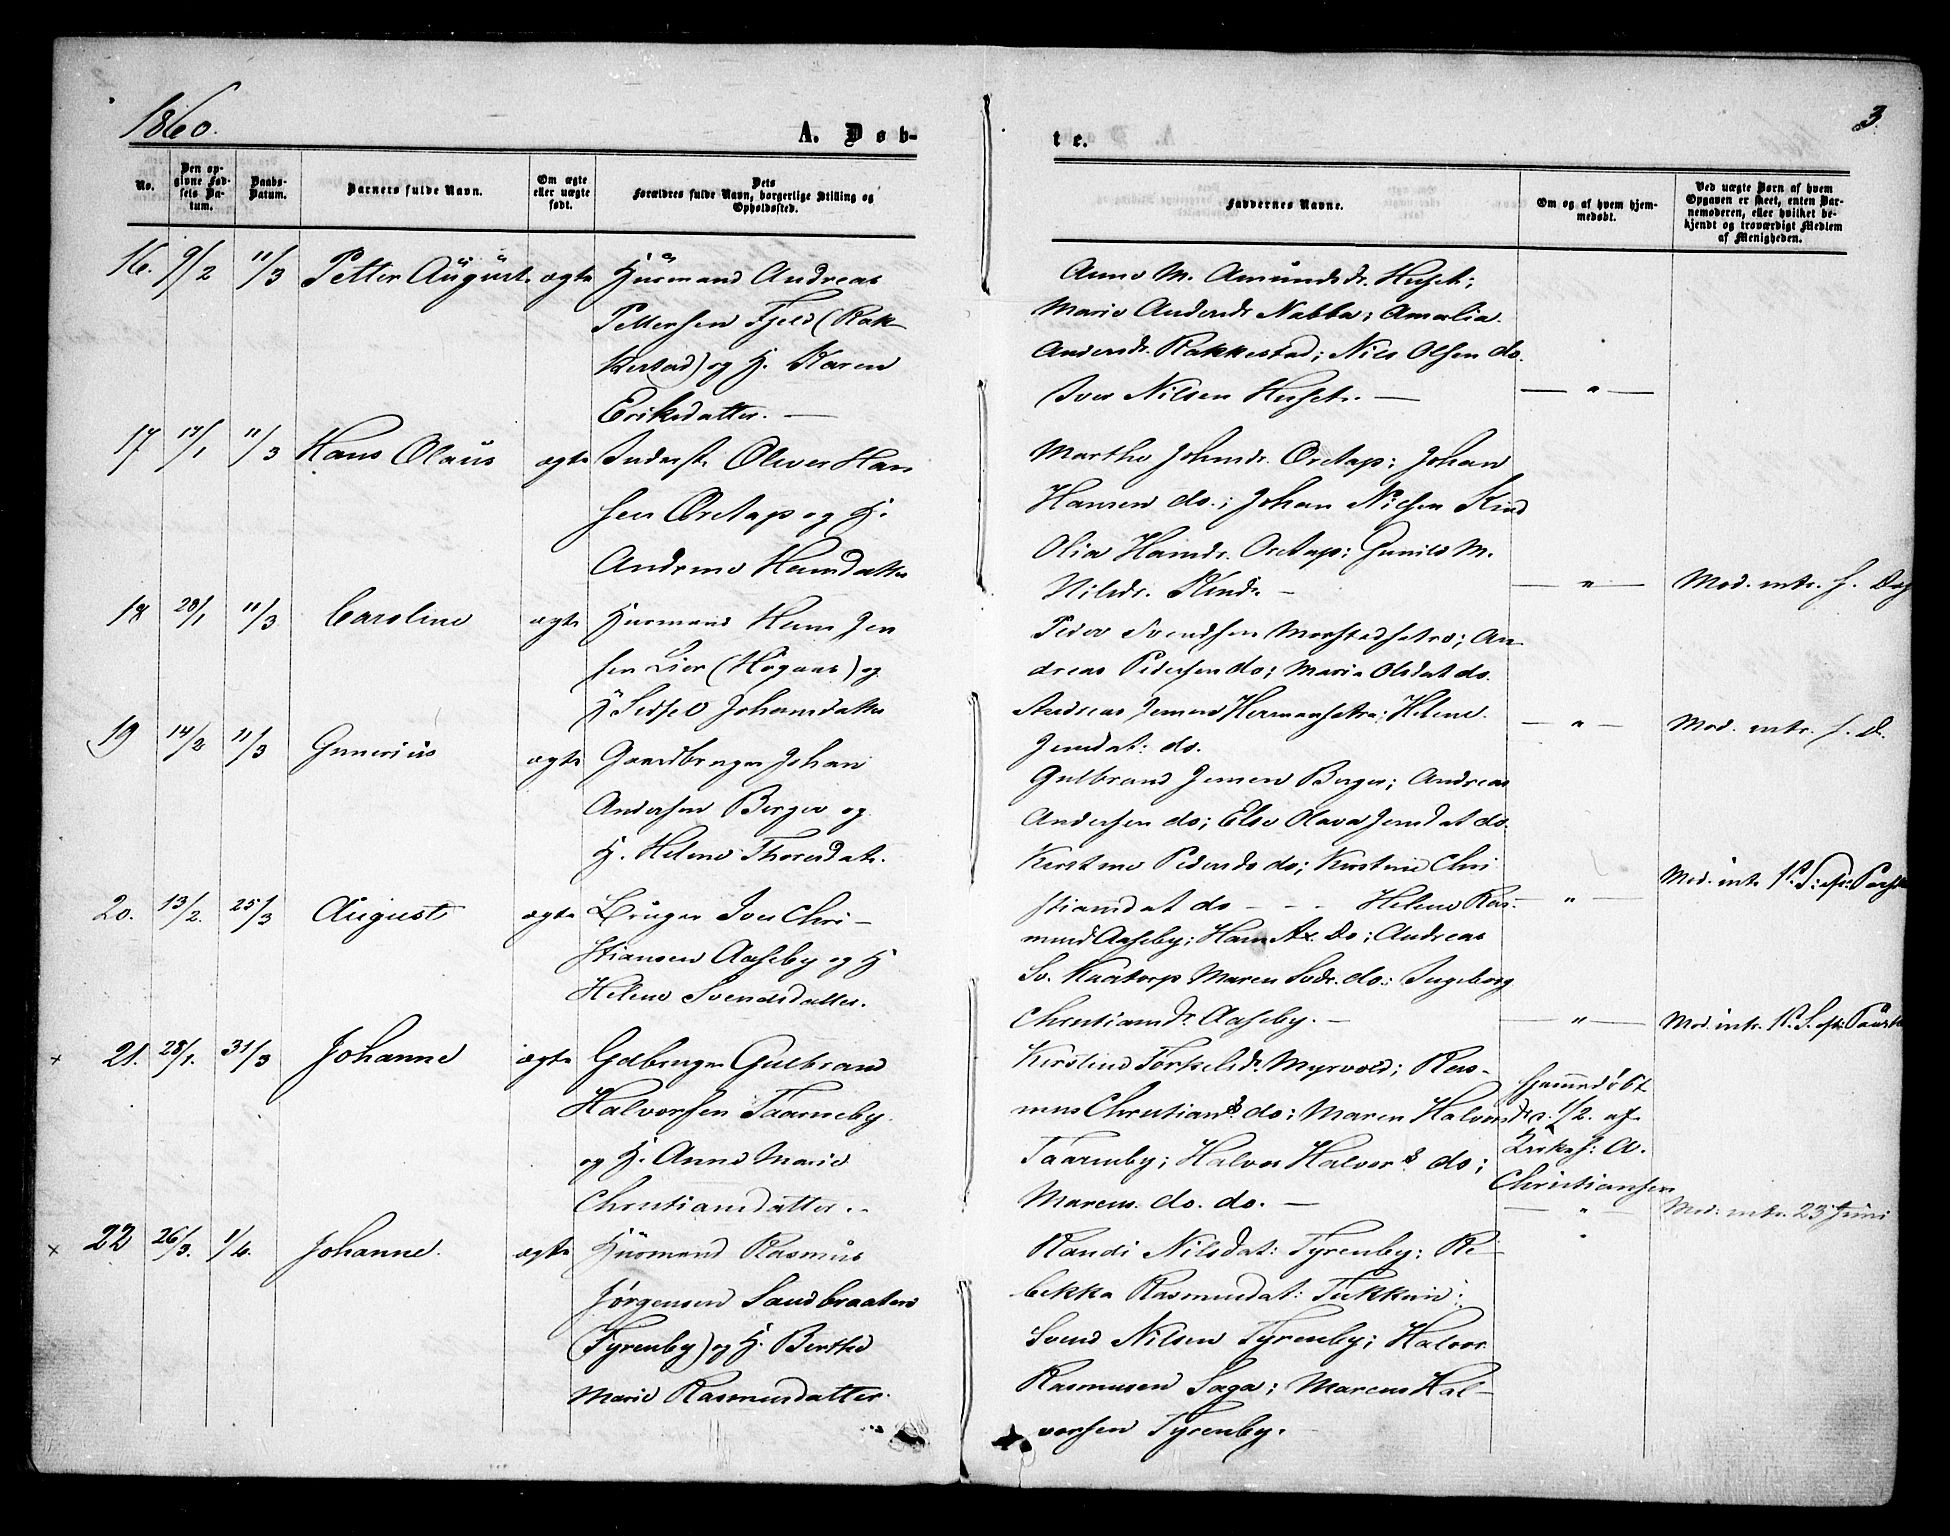 1860.
3.
A. Døb-
te.
No.
Den op-
givne Fød-
sels Da-
tum.
Daabs-
Datum.
Barnets fulde Navn.
Om ægte
eller uægte
født.
Dets
Forældres fulde Navn, borgerlige Stilling og
Opholdssted.
Faddernes Navne.
Om og af hvem hjem-
medøbt.
Ved uægte Børn af hvem
Opgaven er skeet, enten Bar-
nemoderen, eller hvilket be-
kjendt og troværdigt Medlem
af Menigheden.
16. 9/2 11/3 Petter August ægte Husmand Andreas
Pettersen Fjeld (Rak-
kestad) og H. Karen
Eriksdatter. —
Anne M. Amundsdr. Huset;
Marie Andersdr Nabba; Amalia
Andersdr. Rakkestad; Nils Olsen do.
Iver Nilsen Huset. —
— " —
17 17/1 11/3 Hans Olaus ægte Inderst. Oliver Han
sen Oretap og H.
Andrine Hansdatter
Marthe Johnsdr. Oretap; Johan
Hansen do.; Johan Nilsen Kind
Olia Hansdr. Oretap; Gunild M.
Nilsdr. Kind. —
— " —
Mod. intr. f. Dag
18 28/1 11/3 Caroline ægte Husmand Hans Jen
sen Lier (Høgaas) og
H Sidsel Johansdatter
Peder Svendsen Morstadsætre; An-
dreas Pedersen do; Maria Olsdat do.
Andreas Jensen Hermansætre; Helene
Jensdat: do.
— " —
Mod. intr. f. D.
19 14/2 11/3 Gunerius ægte Gaardbruger Johan
Andersen Berger og
H. Helene Thoresdatr.
Gulbrand Jensen Berger; Andreas
Andersen do; Else Olava Jensdat do.
Kirstine Pedersdr do; Kirstine Chri
stiansdat do - - -
— " —
Mod. intr.
20. 13/2. 25/3 August ægte Bruger Iver Chri-
stiansen Aaseby og H
Helene Svendsdatter.
Helene Ras-
musd Aaseby; Hans A. Do; Andreas
Sv. Kaatorp Maren Svdr. do.; Ingeborg
Christiansdr Aaseby. —
— " —
Mod. intr.
× 21. 28/1. 31/3 Johanne ægte Gdbruger Gulbrand
Halvorsen Taarneby
og H. Anne Marie
Christiansdatter. -
Kirstine Torkelsdr Myrvold; Ras-
mus Christians. do; Maren Halvorsdr
Taarneby; Halvor Halvors. do;
Marcus. do. do. —
Hjemmedøbt
1/2. af
Kirkes: A.
Christiansen
— " —
Mod: intr. 23 Juni
× 22 26/3. 1/4. Johanne. ægte Husmand Rasmus
Jørgensen Sandbraaten
(Tyrenby) og H. Berthe
Marie Rasmusdatter.
Randi Nilsdat: Tyrenby; Re-
bekka Rasmusdat:
Svend Nilsen Tyrenby; Halvor
Rasmusen Saga; Marcus Hal-
vorsen Tyrenby.